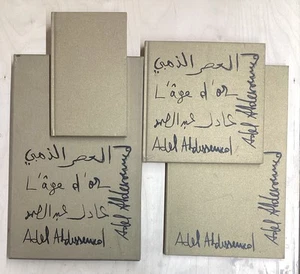 العصر الذهبي
L'âge d'or
عادل عبد الصمد
Adel Abdessemed
Adel Abdessemed
العصر الذهبي
L'âge d'or
عادل عبد الصمد
Adel Abdessemed
Adel Abdessemed
Adel Abdessemed
Adel Abdessemed